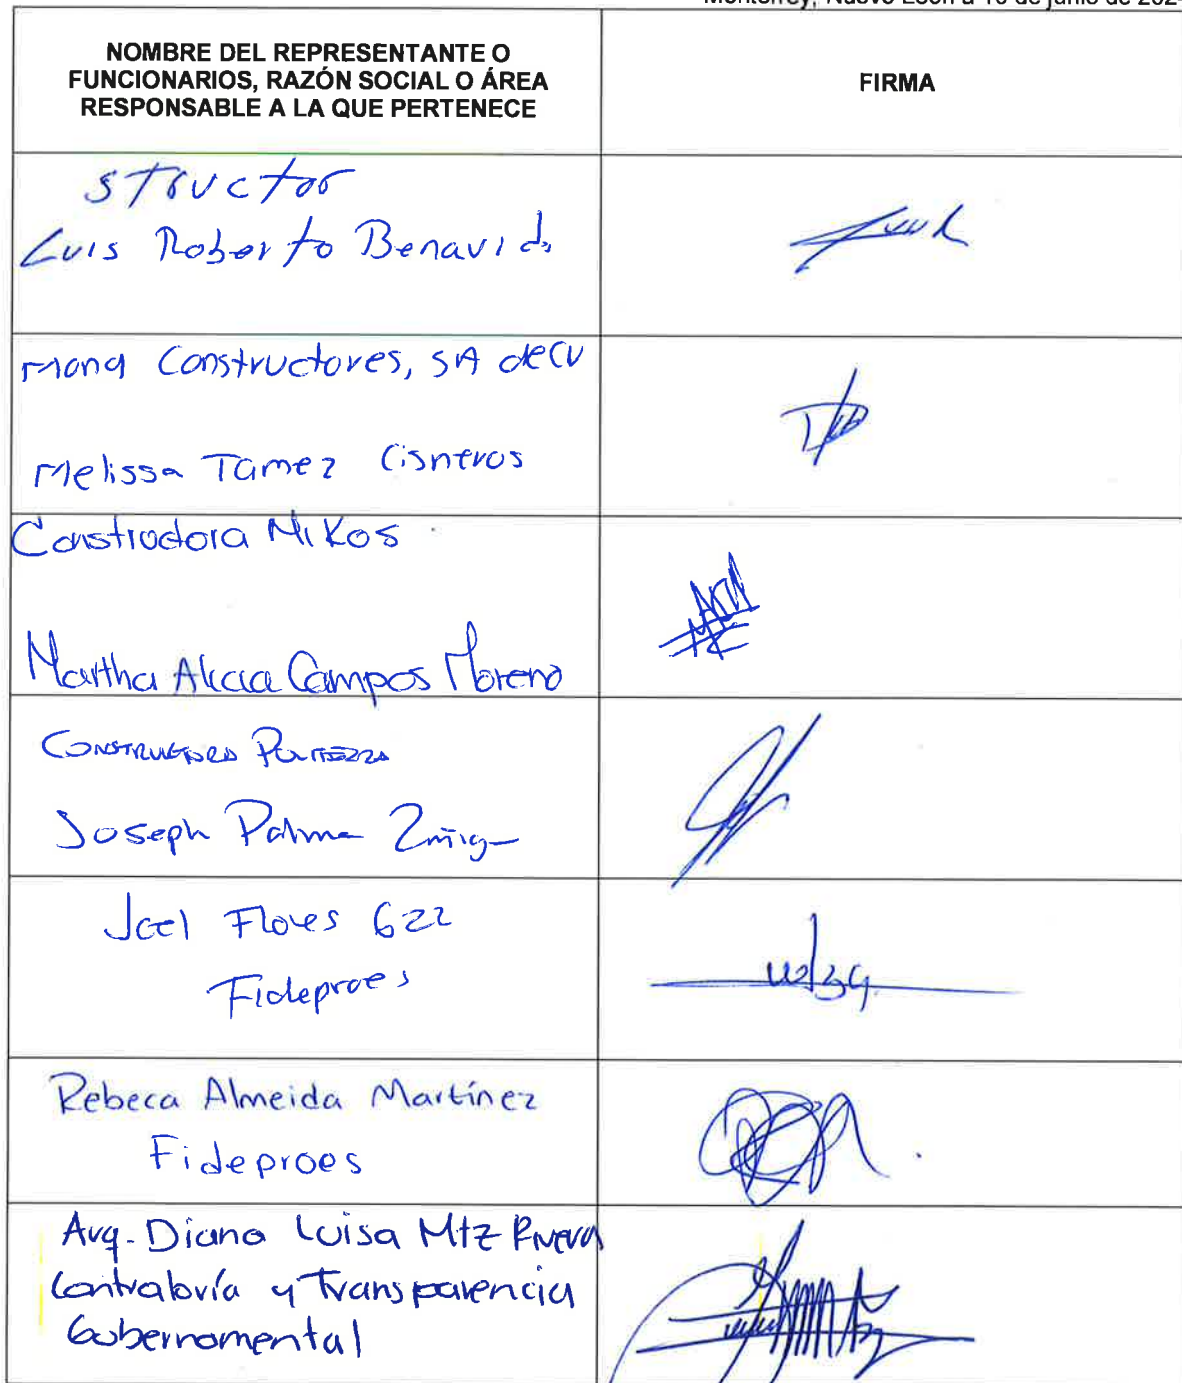 Monterrey, Nuevo León a 10 de junio de 202
NOMBRE DEL REPRESENTANTE O
FUNCIONARIOS, RAZÓN SOCIAL O ÁREA
RESPONSABLE A LA QUE PERTENECE
FIRMA
Structor
Luis Roberto Benavid
Mona Constructores, SA de CV
Melissa Tamez Cisneros
Constructora Mikos
Martha Alicia Campos Moreno
Constructora
Joseph Palma
Joel Flores
Fideproes
Rebeca Almeida Martínez
Fideproes
Arq. Diana Luisa Mtz Rivera
Contraloría y Transparencia
Gubernamental